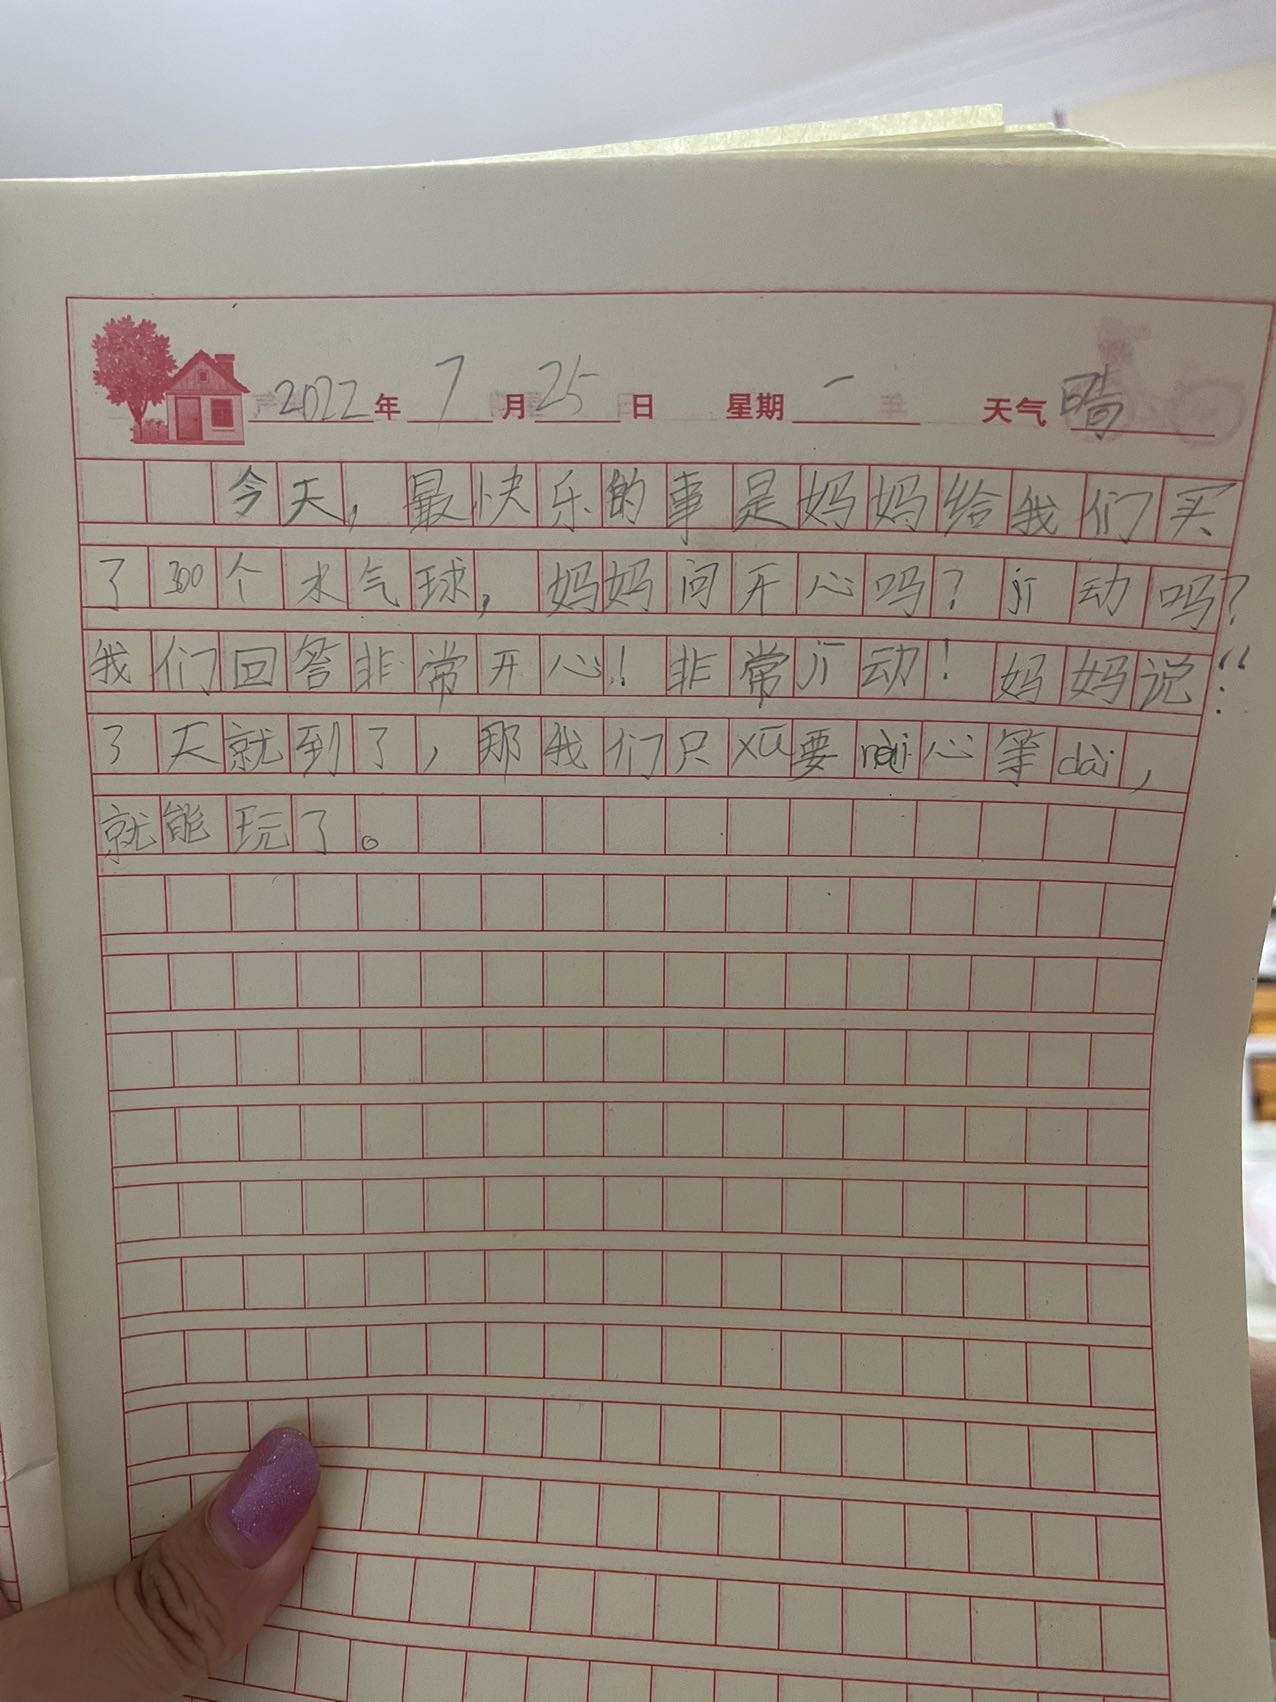 2022年7月25日 星期一 天气晴
今天，最快乐的事是妈妈给我们买
了300个水气球，妈妈问开心吗？jī动吗？
我们回答非常开心！非常jī动！妈妈说：“
了天就到了，那我们只xū要nài心等dài，
就能玩了。